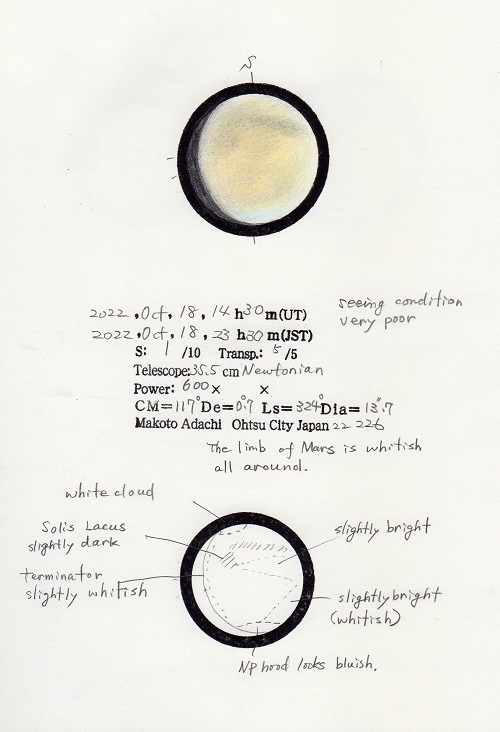 S
2022, Oct, 18, 14 h 30 m (UT)
2022, Oct, 18, 23 h 30 m (JST)
seeing condition
very poor
S: 1 /10 Transp.: 5 /5
Telescope: 35.5 cm Newtonian
Power: 600 × ×
CM=117° De=0°.7 Ls=324° Dia=13".7
Makoto Adachi Ohtsu City Japan 22 226
The limb of Mars is whitish
all around.
white cloud
Solis Lacus
slightly dark
slightly bright
terminator
slightly whitish
slightly bright
(whitish)
NP hood looks bluish.